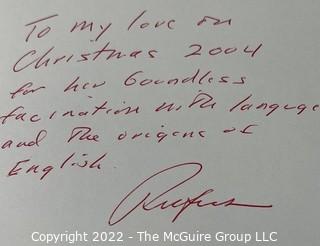 To my love on
Christmas 2004
for her boundless
facination with language
and the origins of
English.
Rufus
Copyright 2022 - The McGuire Group LLC